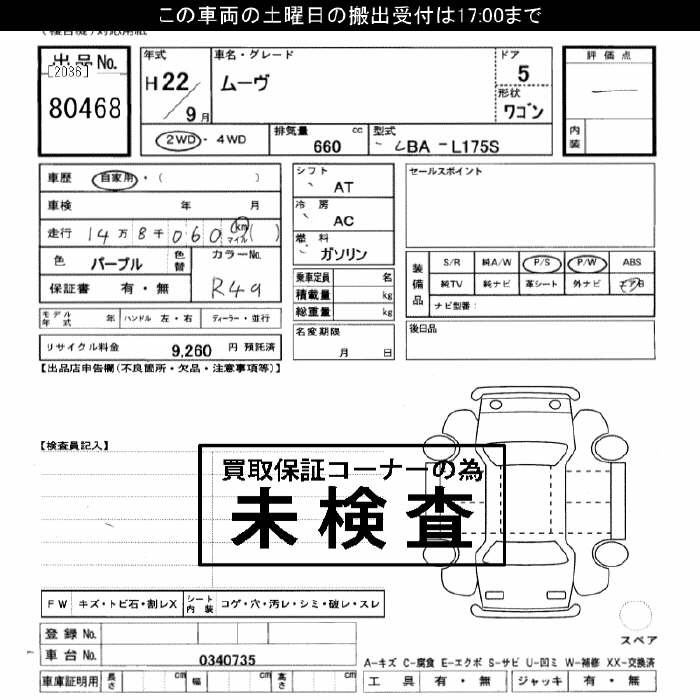 この車両の土曜日の搬出受付は17:00まで
出品No.
[2036]
80468
年式
H22
9月
車名・グレード
ムーヴ
ドア
5
形状
ワゴン
評価点
内装
2WD・4WD
排気量 cc
660
型式
LBA-L175S
車歴 自家用・( )
車検 年 月
走行 14万8千060 km マイル ( )
色 パープル 色替
カラーNo.
R49
保証書 有・無
シフト
AT
冷房
AC
燃料
ガソリン
乗車定員 名
積載量 kg
総重量 kg
名変期限
月 日
セールスポイント
装備品
S/R 純A/W P/S P/W ABS
純TV 純ナビ 革シート 外ナビ エアB
ナビ型番:
後日品
モデル年式 年 ハンドル 左・右 ディーラー・並行
リサイクル料金 9,260 円 預託済
【出品店申告欄(不良箇所・欠品・注意事項等)】
【検査員記入】
買取保証コーナーの為
未検査
FW キズ・トビ石・割レX シート内装 コゲ・穴・汚レ・シミ・破レ・スレ
登録No.
車台No. 0340735
車庫証明用 長さ cm 幅 cm 高さ cm
スペア
A-キズ C-腐食 E-エクボ S-サビ U-凹ミ W-補修 XX-交換済
工具 有・無 ジャッキ 有・無